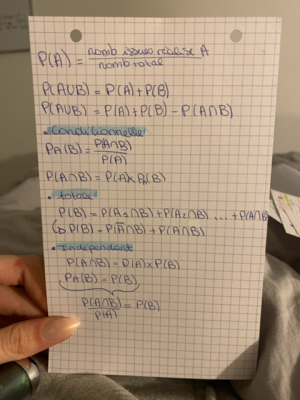 P(A) = nomb issues réalise A / nomb total
P(A∪B) = P(A) + P(B)
P(A∪B) = P(A) + P(B) - P(A∩B)
• Conditionnelle:
PA(B) = P(A∩B) / P(A)
P(A∩B) = P(A) × PA(B)
• totale
P(B) = P(A₁∩B) + P(A₂∩B) ... + P(An∩B)
↳ P(B) = P(A̅∩B) + P(A∩B)
• Indépendant
P(A∩B) = P(A) × P(B)
PA(B) = P(B)
P(A∩B) / P(A) = P(B)